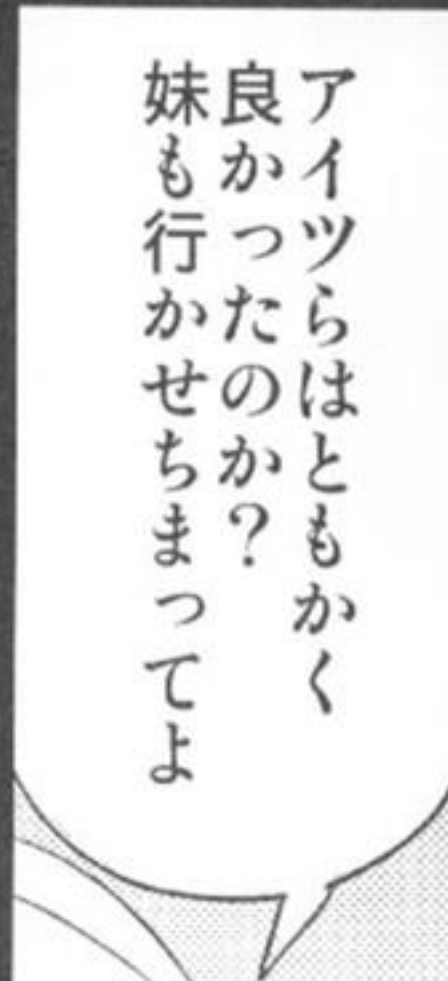 アイツらはともかく
良かったのか？
妹も行かせちまってよ